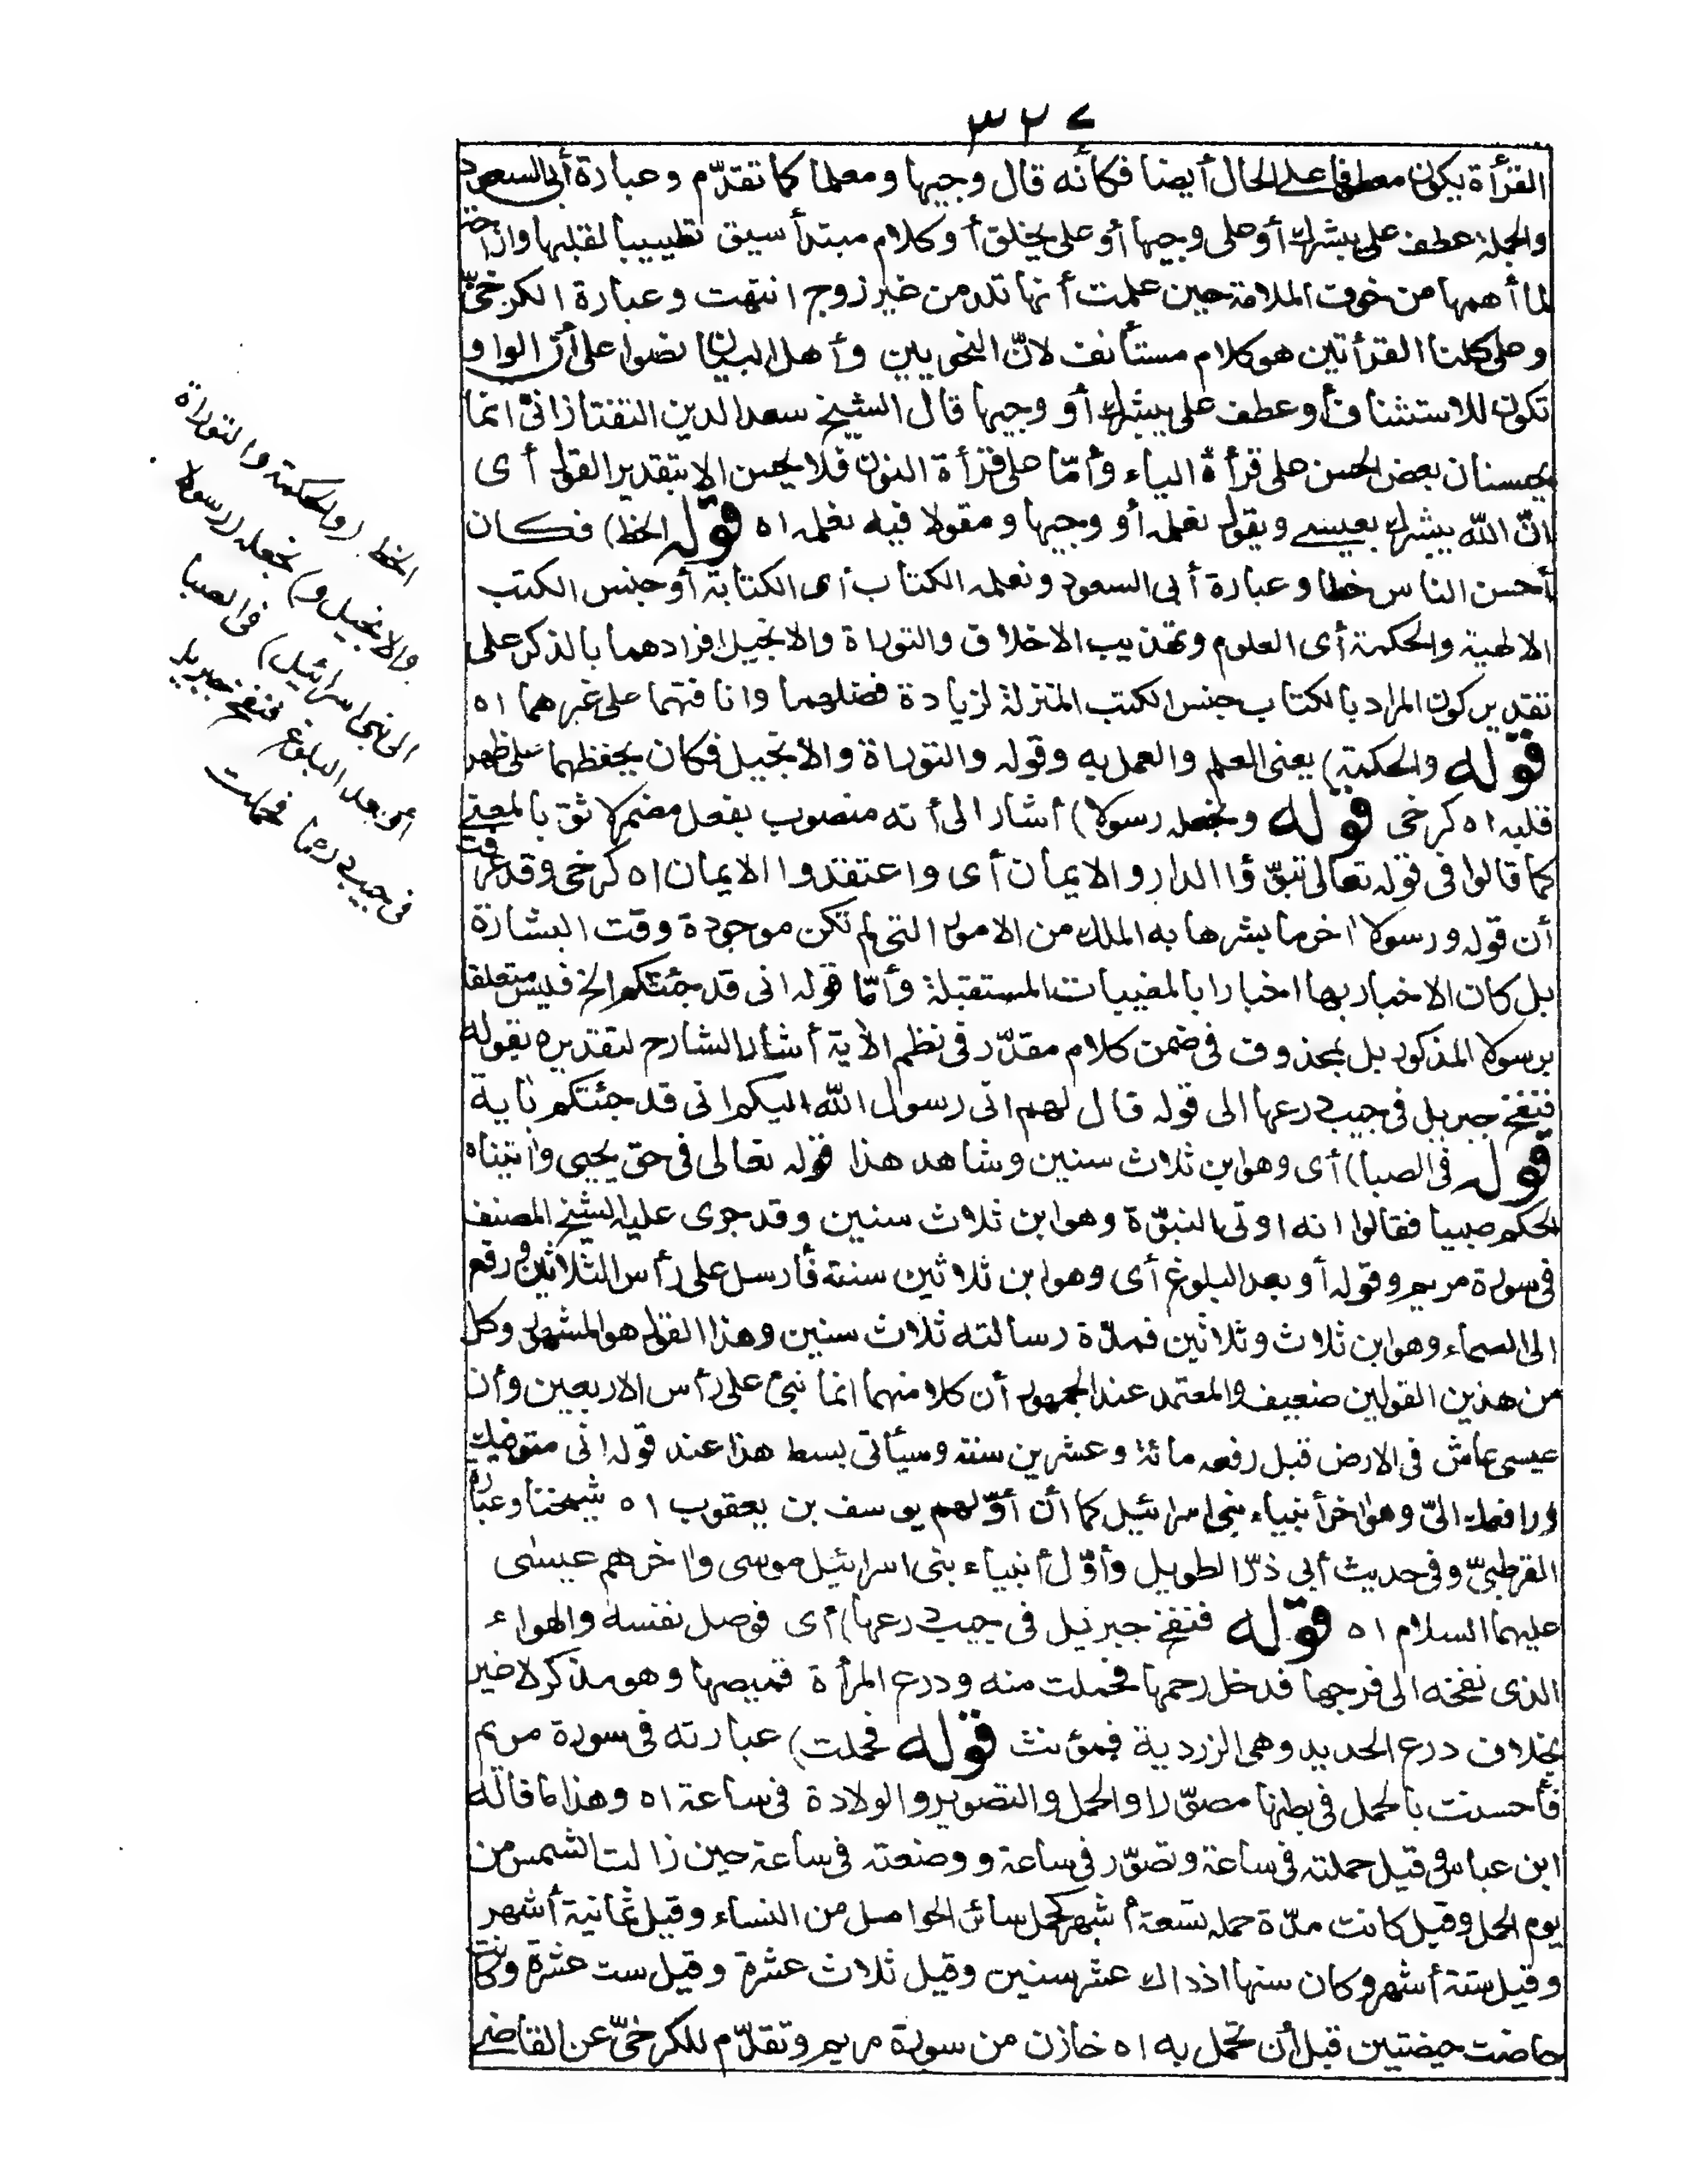 ٣٢٧
القرأة يكون معطوفا على الحال أيضا فكأنه قال وجيها ومعلما كما تقدّم وعبارة أبى السعود
والجملة عطف على يبشرك أو على وجيها أو على يخلق أو كلام مبتدأ سيق تطييبا لقلبها وازاحة
لما أهمها من خوف الملامة حين علمت أنها تلد من غير زوج انتهت وعبارة الكرخىّ
وعلى كلتا القرأتين هو كلام مستأنف لانّ النحويين وأهل البيان نصوا على أن الواو
تكون للاستئناف أو عطف على يبشرك أو وجيها قال الشيخ سعد الدين التفتازانىّ انما
يحسنان بعض الحسن على قرأة الياء وأمّا على قرأة النون فلا يحسن الا بتقدير القول أى
انّ الله يبشرك بعيسى ويقول نعلمه أو وجيها ومقولا فيه نعلمه اه قوله الخط) فكان
أحسن الناس خطا وعبارة أبى السعود ونعلمه الكتاب أى الكتابة أو جنس الكتب
الالهية والحكمة أى العلوم وتهذيب الاخلاق والتوراة والانجيل افرادهما بالذكر على
تقدير كون المراد بالكتاب جنس الكتب المنزلة لزيادة فضلهما وانافتهما على غيرهما اه
قوله والحكمة) يعنى العلم والعمل به وقوله والتوراة والانجيل فكان يحفظهما على ظهر
قلبه اه كرخى قوله ونجعله رسولا) أشار الى أنه منصوب بفعل مضمر لائق بالمعنى
كما قالوا فى قوله تعالى تبوّؤا الدار والايمان أى واعتقدوا الايمان اه كرخى وقد عرفت
أن قوله ورسولا اخر ما بشرها به الملك من الامور التى لم تكن موجودة وقت البشارة
بل كان الاخبار بها اخبارا بالمغيبات المستقبلة وأمّا قوله انى قد جئتكم الخ فليس متعلقا
برسولا المذكور بل بمحذوف فى ضمن كلام مقدّر فى نظم الاية أشار الشارح لتقديره بقوله
فنفخ جبريل فى جيب درعها الى قوله قال لهم انى رسول الله اليكم انى قد جئتكم بأية
قوله فى الصبا) أى وهو ابن ثلاث سنين وشاهد هذا قوله تعالى فى حق يحيى واتيناه
الحكم صبيا فقالوا انه اوتى النبوّة وهو ابن ثلاث سنين وقد جرى عليه الشيخ المصنف
فى سورة مريم وقوله أو بعد البلوغ أى وهو ابن ثلاثين سنة فأرسل على رأس الثلاثين ورفع
الى السماء وهو ابن ثلاث وثلاثين فمدّة رسالته ثلاث سنين وهذا القول هو المشهور وكل
من هذين القولين ضعيف والمعتمد عند الجمهور أن كلا منهما انما نبئ على رأس الاربعين وأن
عيسى عاش فى الارض قبل رفعه مائة وعشرين سنة وسيأتى بسط هذا عند قوله انى متوفيك
ورافعك الىّ وهو اخر أنبياء بنى اسرائيل كما أن أوّلهم يوسف بن يعقوب اه شيخنا وعبارة
القرطبىّ وفى حديث أبى ذرّ الطويل وأوّل أنبياء بنى اسرائيل موسى واخرهم عيسى
عليهما السلام اه قوله فنفخ جبرئيل فى جيب درعها) أى فوصل نفسه والهواء
الذى نفخه الى فرجها فدخل رحمها فحملت منه ودرع المرأة قميصها وهو مذكر لا غير
بخلاف درع الحديد وهى الزردية فمؤنث قوله فحملت) عبارته فى سورة مريم
فأحست بالحمل فى بطنها مصوّرا والحمل والتصوير والولادة فى ساعة اه وهذا ما قاله
ابن عباس وقيل حملته فى ساعة وتصوّر فى ساعة ووضعته فى ساعة حين زالت الشمس من
يوم الحمل وقيل كانت مدّة حمله تسعة أشهر كحمل سائر الحوامل من النساء وقيل ثمانية أشهر
وقيل ستة أشهر وكان سنها اذ ذاك عشر سنين وقيل ثلاث عشرة وقيل ست عشرة وكانت
حاضت حيضتين قبل أن تحمل به اه خازن من سورة مريم وتقدّم للكرخىّ عن القاضى
الخط (والحكمة والتوراة
والانجيل و) نجعله (رسولا
الى بنى اسرائيل) فى الصبا
أو بعد البلوغ فنفخ جبريل
فى جيب درعها فحملت